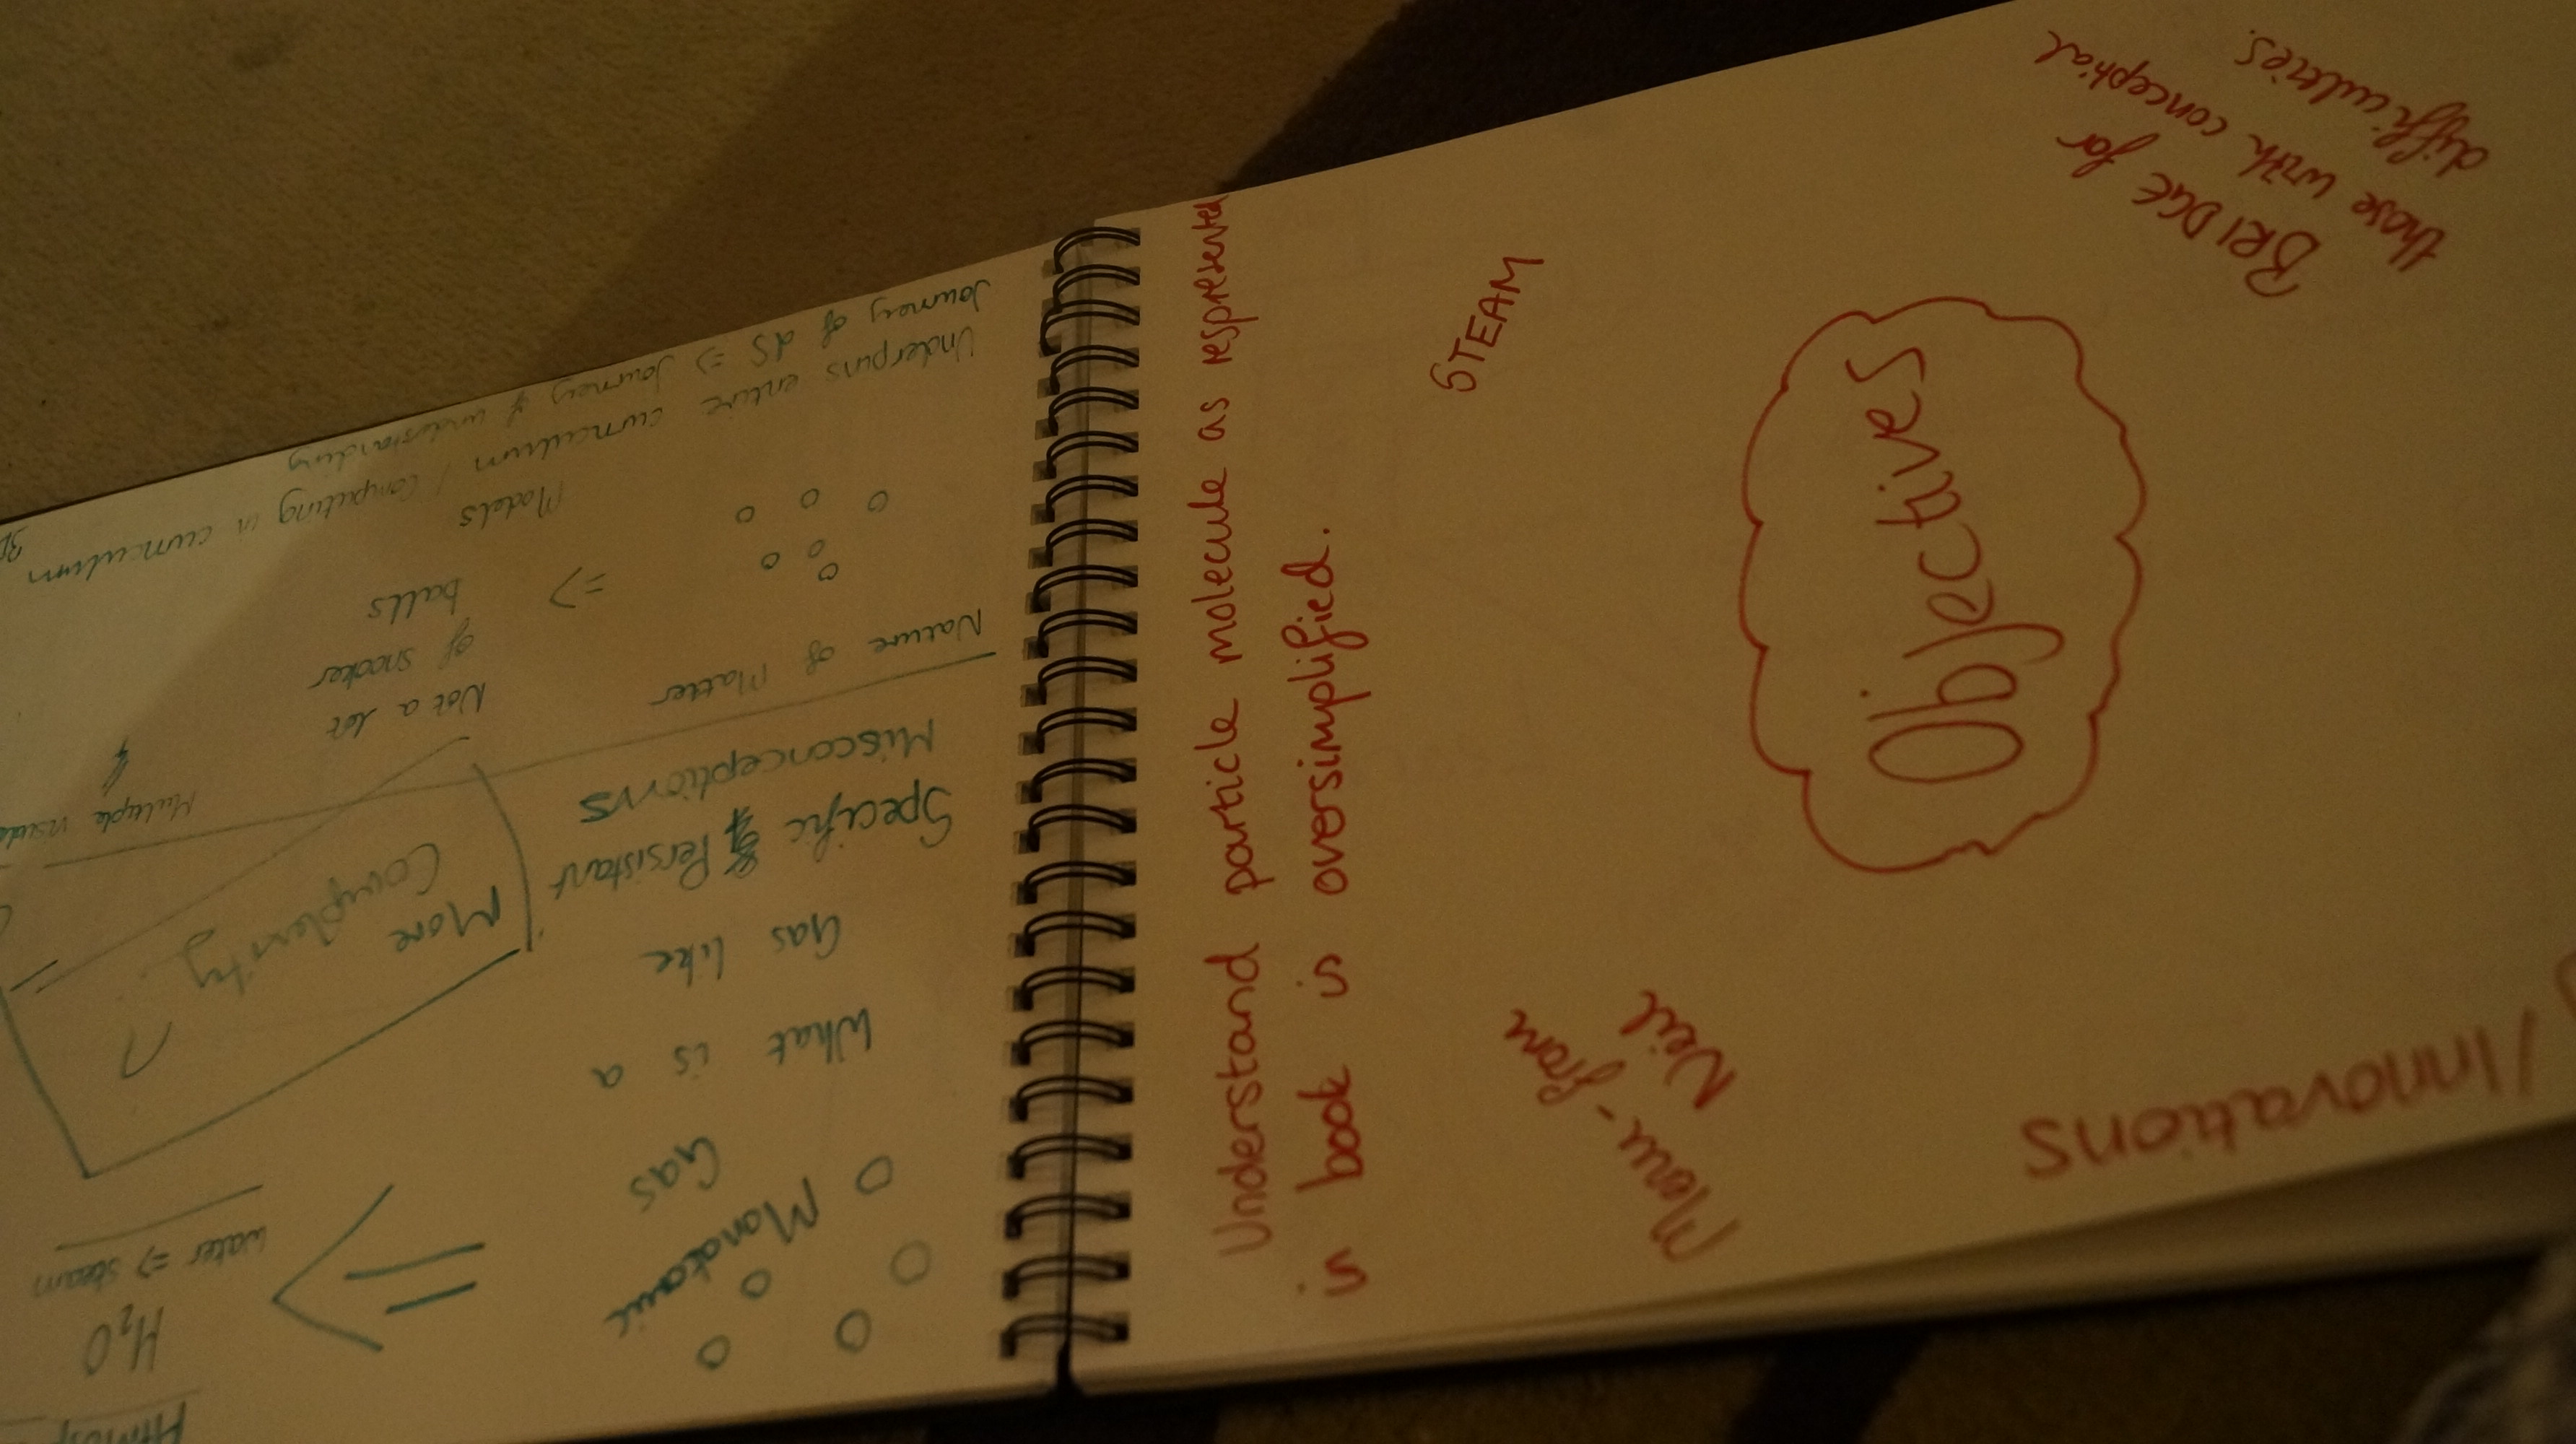 Understand particle molecule as respresented
in book is oversimplified.
STEAM
Objectives
BRIDGE for
those with conceptual
difficulties.
from
Neil
/Innovations
Journey of dS => Journey of understanding
Underpins entire curriculum / Computing in curriculum
Models
Nature of Matter
=>
Not a lot
of snooker
balls
Specific & Persistant
Misconceptions
What is a
Gas like
Monatomic
Gas
More
Complexity
Multiple
H₂O
water => steam